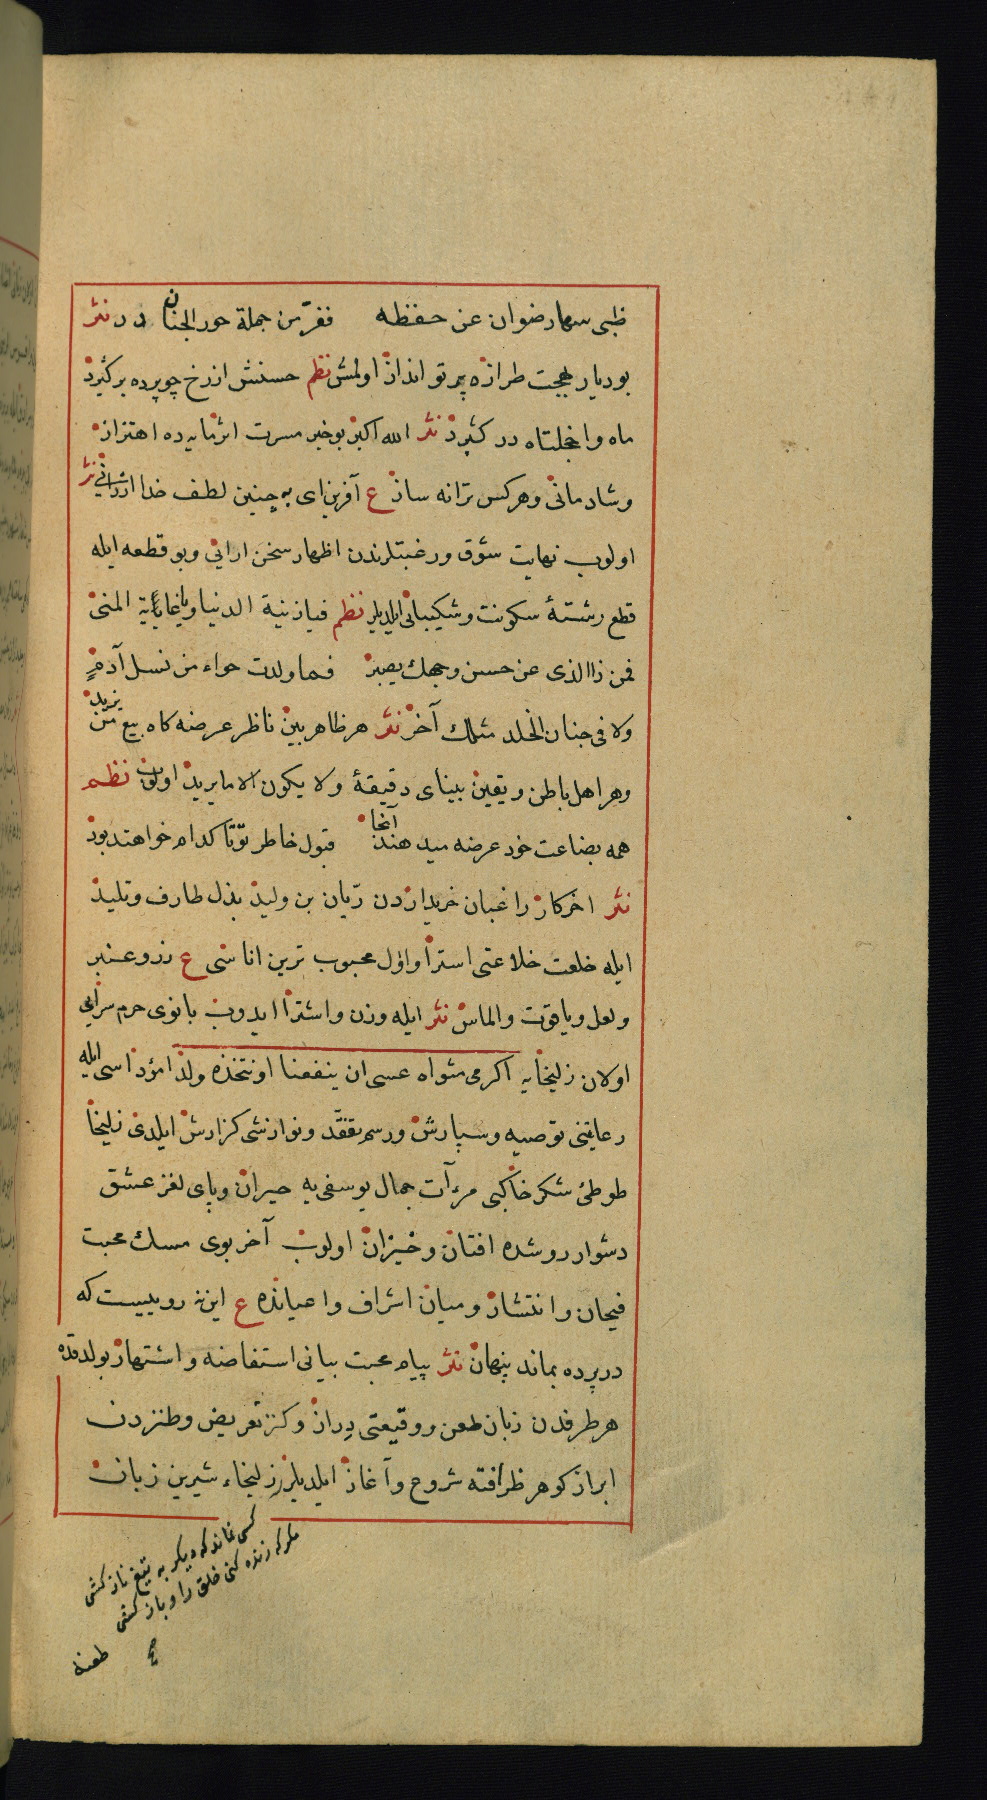 ظبی سها رضوان عن حفظه ففرّ من جملة حور الجنان در نثر
بو دیار بهجت طرازه پرتو انداز اولمش نظم حسنش از رخ چو پرده برکیرد
ماه واخجلتاه در کیرد نثر الله اکبر بو خبر مسرت اثر مایه ده اهتزاز
وشادمانی وهرکس ترانه ساز ع آفرین ای به چنین لطف خدا ارزانی نثر
اولوب نهایت شوق ورغبتلرندن اظهار سخن ارایی وبو قطعه ایله
قطع رشتهٔ سکونت وشکیبائی ایلدیلر نظم فیا زینة الدنیا ویا غایة المنی
فمن ذا الذی عن حسن وجهك یصبر فما ولدت حواء من نسل آدم
ولا فی جنان الخلد مثلك آخر نثر هر ظاهر بین ناظر عرضه کاه بیع من یزید
وهر اهل باطن ویقین بینای دقیقهٔ ولا یکون الا ما یرید اولوب نظم
همه بضاعت خود عرضه میدهند آنجا قبول خاطر تو تا کدام خواهد بود
نثر اخر کار راغبان خریداردن ریان بن ولید بذل طارف وتلید
ایله خلعت خلاعتی استرا واول محبوب ترین اناسی ع زر وعنبر
ولعل ویاقوت والماس نثر ایله وزن واشترا ایدوب بانوی حرم سرایی
اولان زلیخایه اکرمی مثواه عسی ان ینفعنا او نتخذه ولدا مؤداسی ایله
رعایتنی توصیه وسپارش ورسم تفقّد ونوازشی کزارش ایلدی زلیخا
طوطئ شکر خا کبی مرءآت جمال یوسفی یه حیران وپای لغز عشق
دشوار روشده افتان وخیزان اولوب آخر بوی مسك محبت
فیحان وانتشار ومیان اشراف واعیانده ع این نه روییست که
در پرده بماند پنهان نثر پیام محبت بیانی استفاضه واشتهار بولدقده
هر طرفدن زبان طعن ووقیعتی دراز وکنز تعریض وطنزدن
ابراز کوهر ظرافته شروع وآغاز ایلدیلر زلیخاء شیرین زبان
کسی نماند که دیکر به تیغ ناز کشی
مکر که زنده کنی خلق را و باز کشی
صح
طعنه